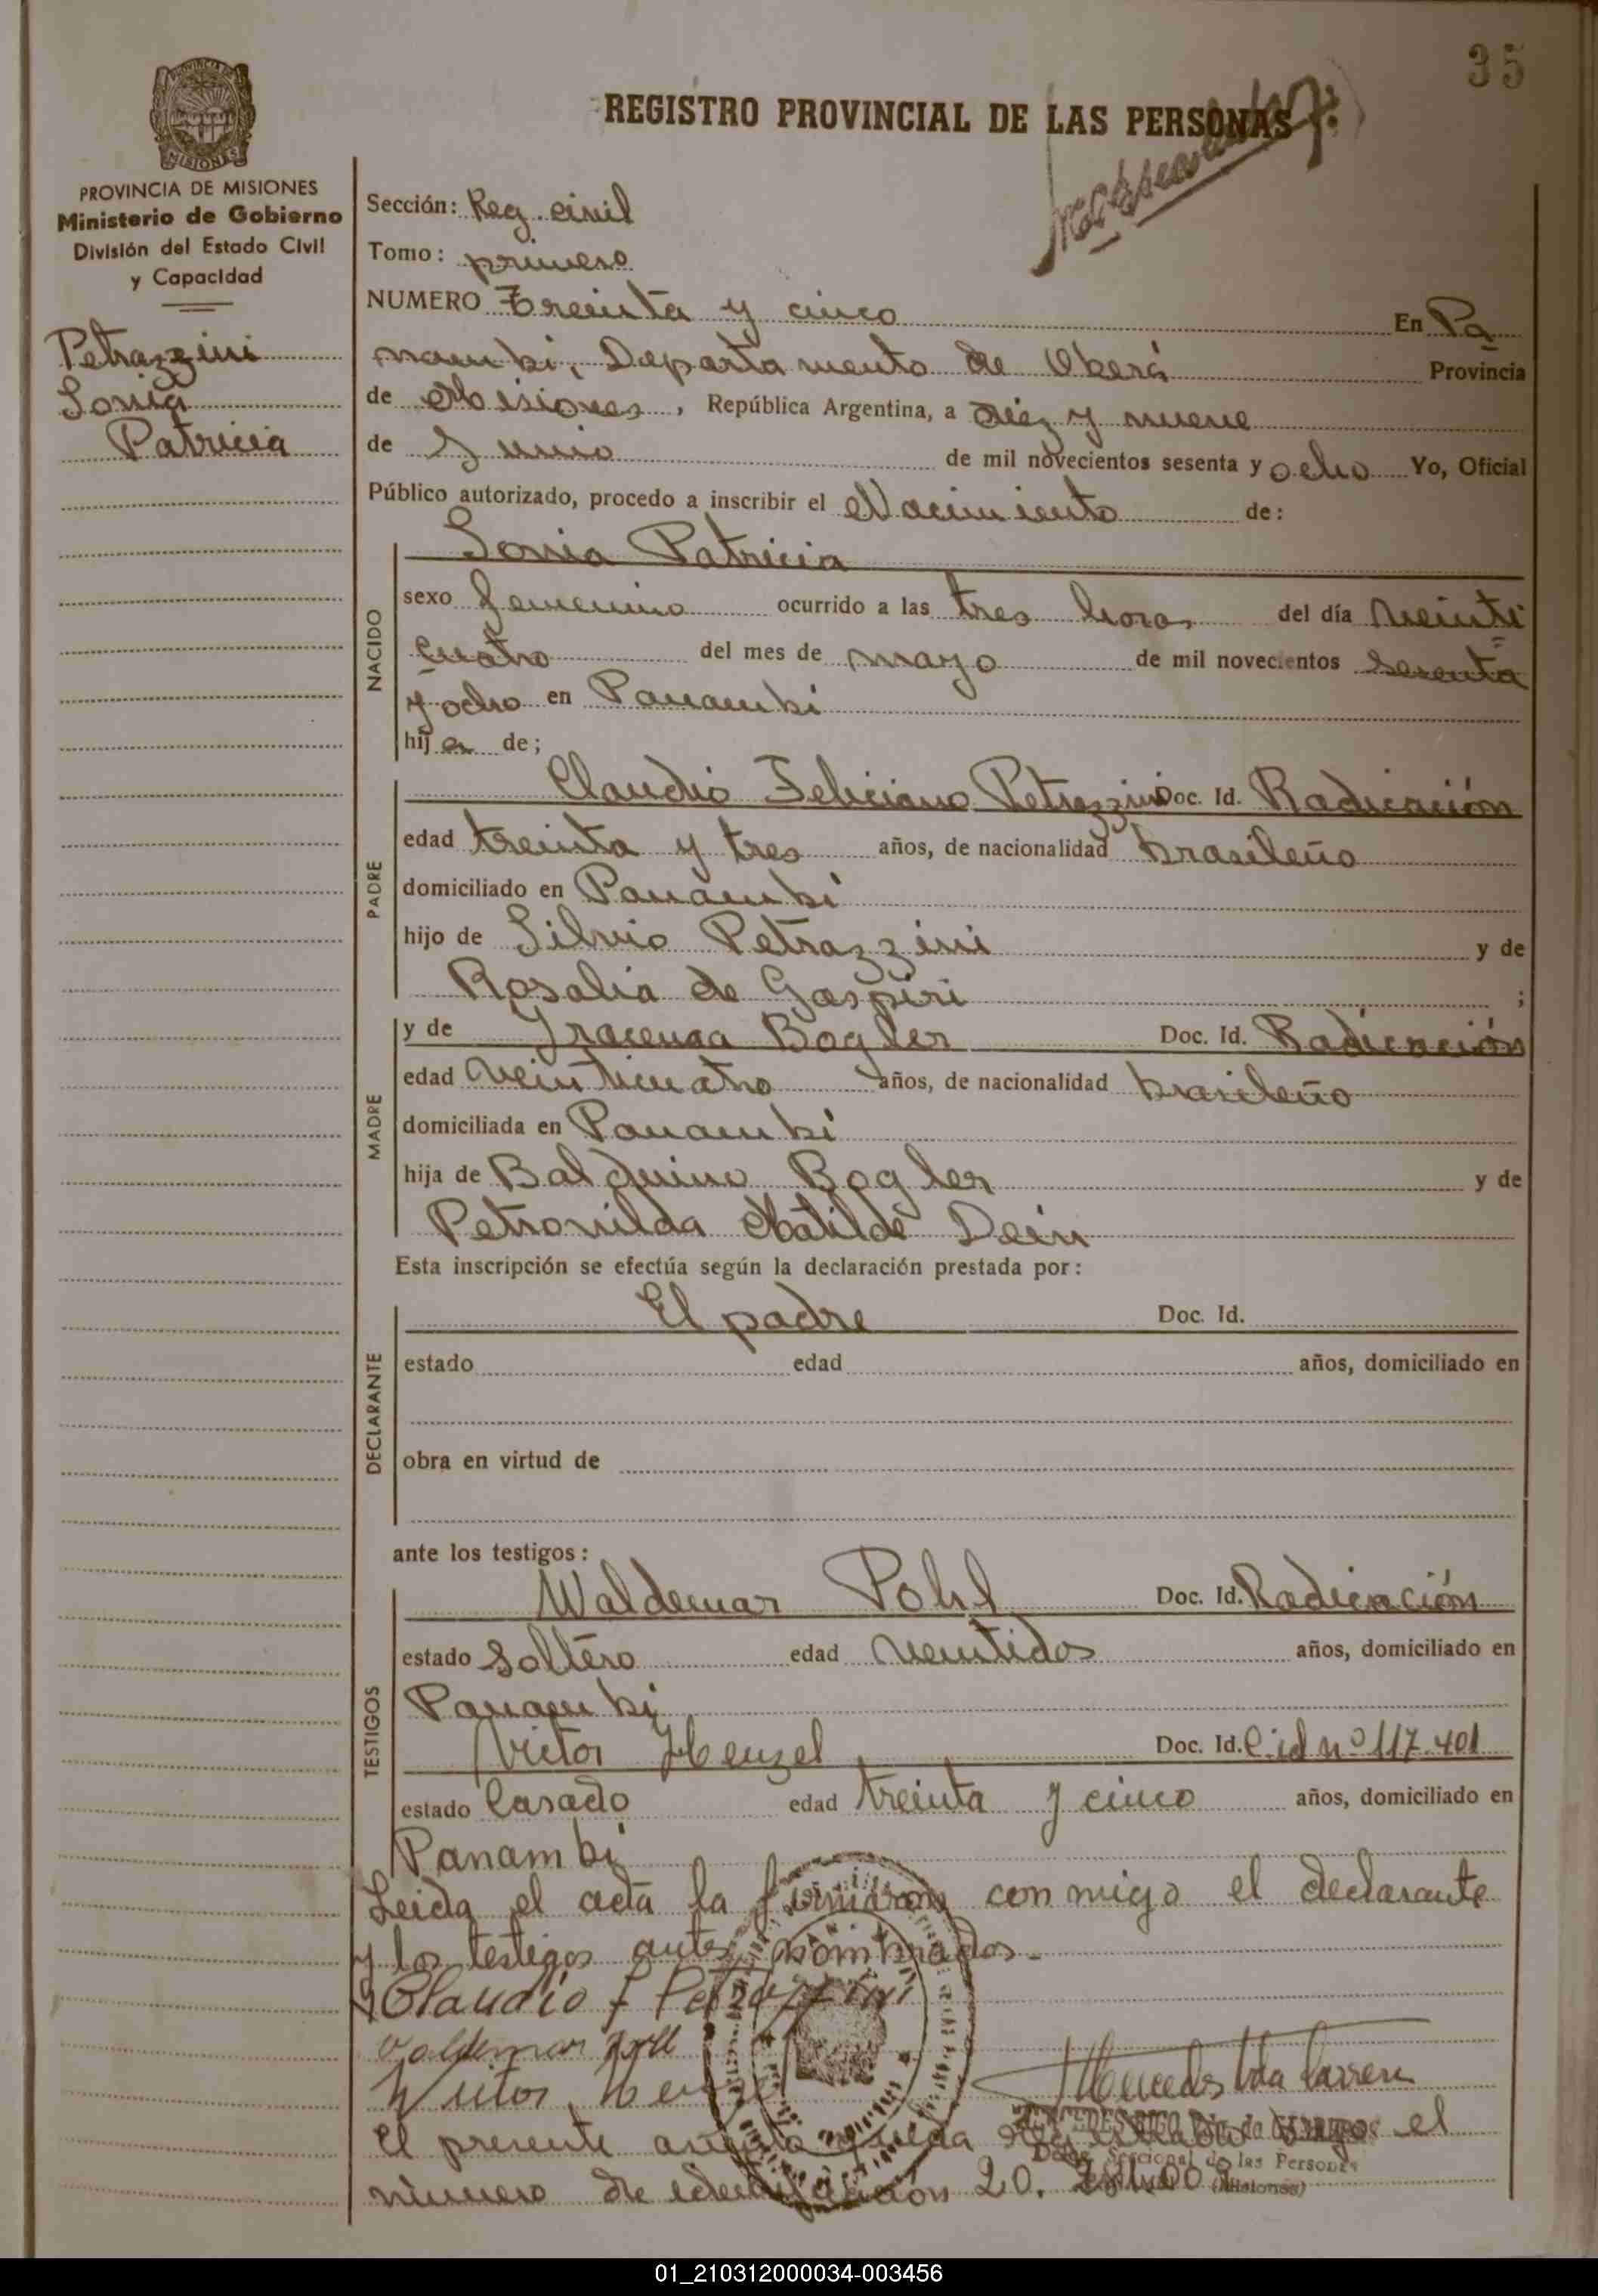 35
REGISTRO PROVINCIAL DE LAS PERSONAS
PROVINCIA DE MISIONES
Ministerio de Gobierno
División del Estado Civil
y Capacidad
Petrazzini
Sonia
Patricia
Sección: Reg. civil
Tomo: primero
NUMERO Treinta y cinco En Pa
nambi, Departamento de Oberá Provincia
de Misiones, República Argentina, a diez y nueve
de Junio de mil novecientos sesenta y ocho Yo, Oficial
Público autorizado, procedo a inscribir el Nacimiento de:
NACIDO
Sonia Patricia
sexo femenino ocurrido a las tres horas del día veinti
cuatro del mes de mayo de mil novecientos sesenta
y ocho en Panambi
hija de;
PADRE
Claudio Feliciano Petrazzini Doc. Id. Radicación
edad treinta y tres años, de nacionalidad brasileño
domiciliado en Panambi
hijo de Silvio Petrazzini y de
Rosalia de Gaspiri ;
MADRE
y de Iracema Bogler Doc. Id. Radicación
edad veinticuatro años, de nacionalidad brasileño
domiciliada en Panambi
hija de Balduino Bogler y de
Petronilda Matilde Dein
Esta inscripción se efectúa según la declaración prestada por:
DECLARANTE
El padre Doc. Id.
estado edad años, domiciliado en
obra en virtud de
ante los testigos:
TESTIGOS
Waldemar Pohl Doc. Id. Radicación
estado soltero edad veintidos años, domiciliado en
Panambi
Victor Henzel Doc. Id. C.id nº 117.401
estado Casado edad treinta y cinco años, domiciliado en
Panambi
Leida el acta la firmaron conmigo el declarante
y los testigos antes nombrados.-
Claudio F Petrazzini
Valdemar Pohl
Victor Henzel
El presente queda el
número de 20.
Seccional de las Personas
(Misiones)
01_210312000034-003456